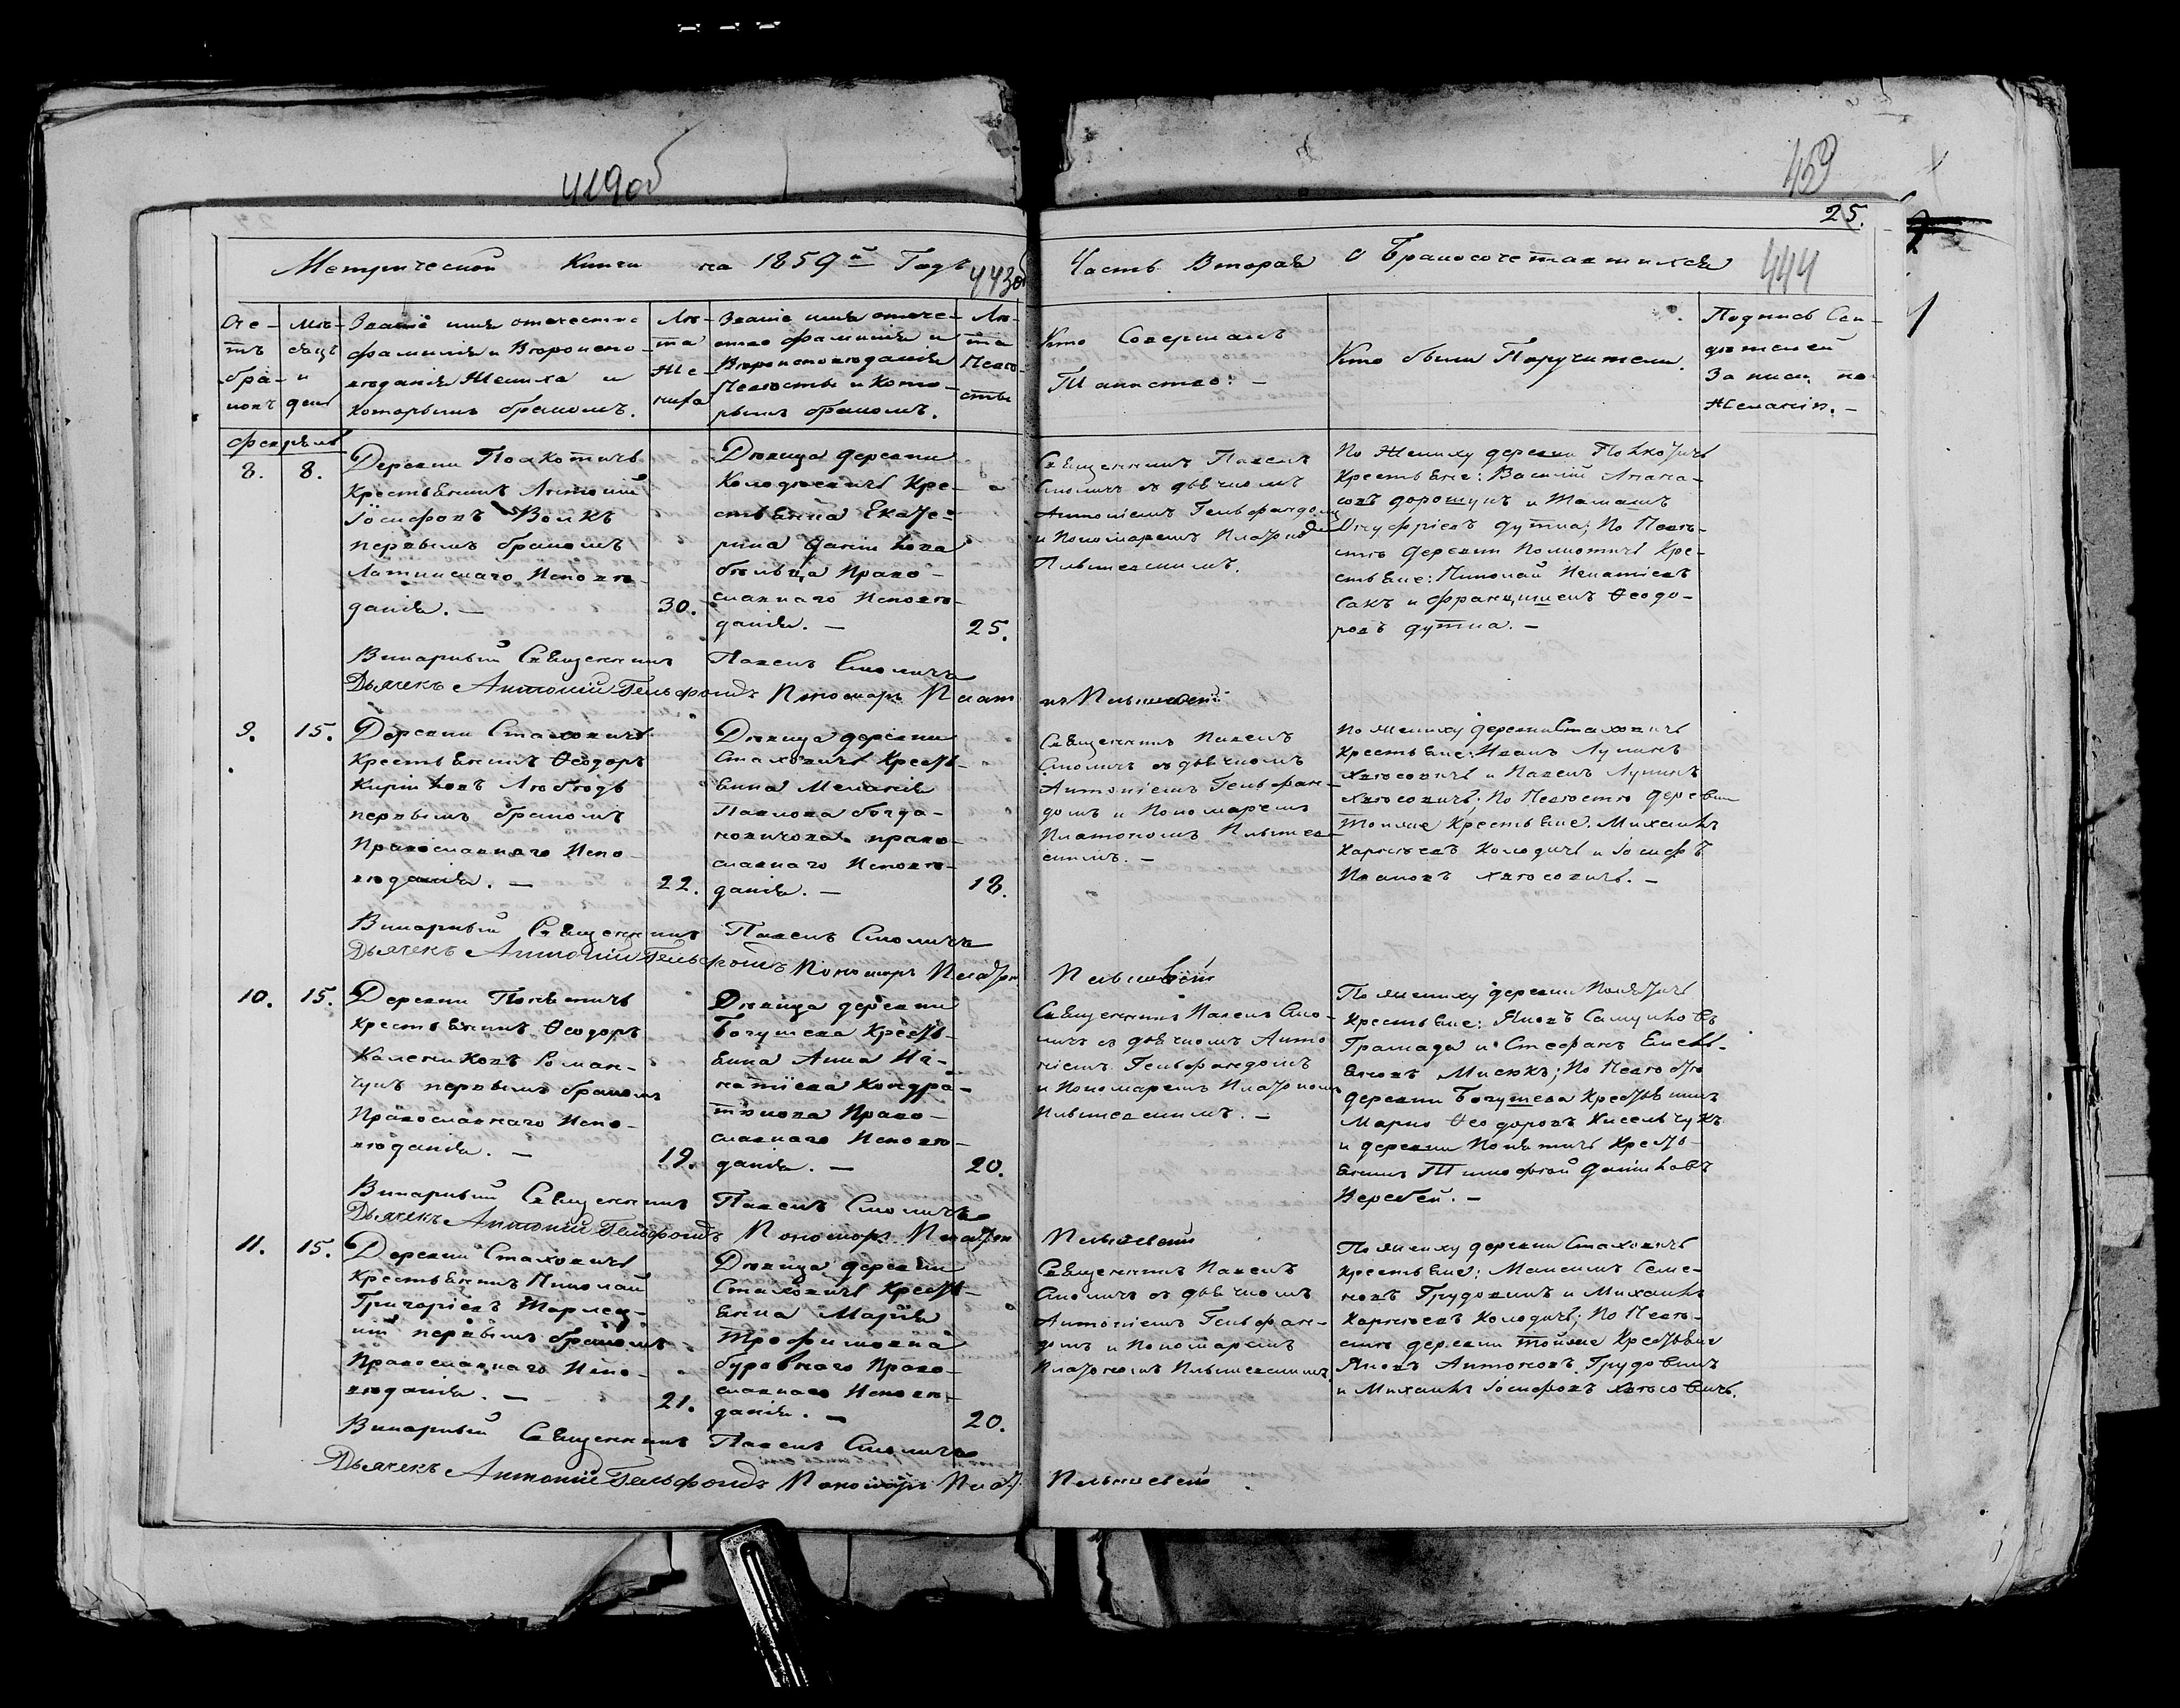 419об
459
25.
Метрической Книги на 1859й Годъ
443об
Часть Вторая О Бракосочетавшихся
444
Сче-
тъ
бра-
ковъ
Мѣ-
сяцъ
и
день
Званіе имя отечество
фамилія и Вѣроиспо-
вѣданія Жениха и
которымъ бракомъ.
Лѣ-
та
Же-
ниха
Званіе имя отече-
ство фамилія и
Вѣроисповѣданія
Невѣсты и кото-
рымъ бракомъ.
Лѣ-
та
Невѣ-
сты
Кто Совершалъ
Таинство: –
Кто были Поручители.
Подпись Сви-
дѣтелей
Записи по
Желанію. –
февраль
8.
8.
Деревни
Крестьянинъ Антоній
Іосифовъ Волкъ
первымъ бракомъ
Латинскаго Исповѣ-
данія. –
30.
Дѣвица деревни
Колодѣевичъ Кре-
стьянка Екате-
рина Даніилова
Православнаго Исповѣ-
данія. –
25.
Священникъ Павелъ
Смоличъ съ дьячкомъ
Антоніемъ Гельфандомъ
и Пономаремъ Платоно
Илькевскимъ.
По Жениху деревни
Крестьяне: Василій Апана-
совъ дорошукъ и
Онуфріевъ дутка; По Невѣ-
стѣ деревни Кре-
стьяне: Николай Игнатіевъ
Сакъ и францишекъ Ѳеодо-
ровъ дутка. –
Викарный Священникъ Павелъ Смоличъ
Дьячекъ Антоній Гельфондъ Пономарь Плат
9.
15.
Деревни Стаховичъ
Крестьянинъ Ѳеодоръ
Кириловъ Любѣдь
первымъ бракомъ
Православнаго Испо-
вѣданія. –
22.
Дѣвица деревни
Стаховичъ Кресть-
янка Меланія
Павлова богда-
новичова право-
славнаго Исповѣ-
данія. –
18.
Священникъ Павелъ
Смоличъ съ дьячкомъ
Антоніемъ Гельфан-
домъ и Пономаремъ
Платономъ
По жениху деревни Стаховичъ
Крестьяне: Иванъ Лукинъ
хвесовичъ и Павелъ Лукинъ
хвѣсовичъ; По Невѣстѣ деревни
Крестьяне: Михаилъ
Карнѣевъ Колодичъ и Іосифъ
Ивановъ хвѣсовичъ. –
Викарный Священникъ Павелъ Смоличъ
Дьячекъ Антоній Гельфондъ Пономарь Платон
10.
15.
Деревни Понятичъ
Крестьянинъ Ѳеодоръ
Калениковъ Роман-
чукъ первымъ бракомъ
Православнаго Испо-
вѣданія. –
19.
Дѣвица деревни
Богушева Кресть-
янка Анна Иг-
натіева Кондра-
тюкова Право-
славнаго Исповѣ-
данія. –
20.
Священникъ Павелъ Смо-
личъ съ дьячкомъ Анто
ніемъ Гельфандомъ
и Пономаремъ Платономъ
По жениху деревни Понятичъ
Крестьяне: Яковъ Самуиловъ
Грамада и Стефанъ
Мисюкъ; По Невѣстѣ
деревни Богушева Крестьянинъ
Марко Ѳеодоровъ Кисельчукъ
и деревни Понятичъ Кресть-
янинъ Тимофей Даніиловъ
Веребей. –
Викарный Священникъ Павелъ Смоличъ
Дьячекъ Антоній Гельфондъ Пономарь Платон
11.
15.
Деревни Стаховичъ
Крестьянинъ Николай
Григоріевъ
первымъ бракомъ
Православнаго Испо-
вѣданія. –
21.
Дѣвица деревни
Стаховичъ Кресть-
янка Марія
Трофимовна
Право-
славнаго Исповѣ-
данія. –
20.
Священникъ Павелъ
Смоличъ съ дьячкомъ
Антоніемъ Гельфан-
домъ и Пономаремъ
Платономъ
По жениху деревни Стаховичъ
Крестьяне: Максимъ Семе-
новъ Грудовикъ и Михаилъ
Карнѣевъ Колодичъ; По Невѣ-
стѣ деревни Крестьяне
Яковъ Антоновъ Грудовикъ
и Михаилъ Іосифовъ хвѣсовичъ.
Викарный Священникъ Павелъ Смоличъ
Дьячекъ Антоній Гельфондъ Пономарь Плат